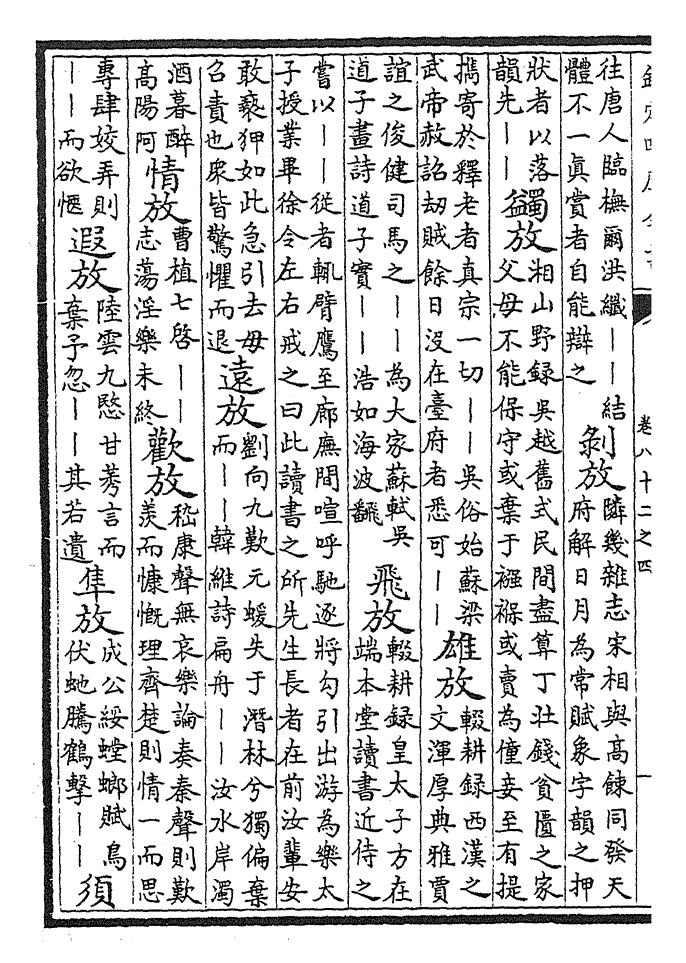 欽定四庫全書
卷八十二之四
往唐人臨橅爾洪纖——結
體不一眞賞者自能辯之
剝放
隣幾雜志宋相與高餗同發天
府解日月為常賦象字韻之押
狀者以落
韻先——
蠲放
湘山野録吳越舊式民間盡算丁壯錢貧匱之家
父母不能保守或棄于襁褓或賣為僮妾至有提
攜寄於釋老者真宗一切——吳俗始蘇梁
武帝赦詔劫賊餘口没在臺府者悉可——
雄放
輟耕録西漢之
文渾厚典雅賈
誼之俊健司馬之——為大家蘇軾吳
道子畫詩道子實——浩如海波飜
飛放
輟耕録皇太子方在
端本堂讀書近侍之
嘗以——從者輒臂鷹至廊廡間喧呼馳逐將勾引出游為樂太
子授業畢徐令左右戒之曰此讀書之所先生長者在前汝輩安
敢褻狎如此急引去毋
召責也衆皆驚懼而退
遠放
劉向九歎元蝯失于潛林兮獨偏棄
而——韓維詩扁舟——汝水岸濁
酒暮醉
高陽阿
情放
曹植七啓——
志蕩淫樂未終
歡放
嵇康聲無哀樂論奏秦聲則歎
羨而慷慨理齊楚則情一而思
專肆姣弄則
——而欲愜
遐放
陸雲九愍甘莠言而
棄予忽——其若遺
隼放
成公綏螳螂賦鳥
伏虵騰鶴擊——
須